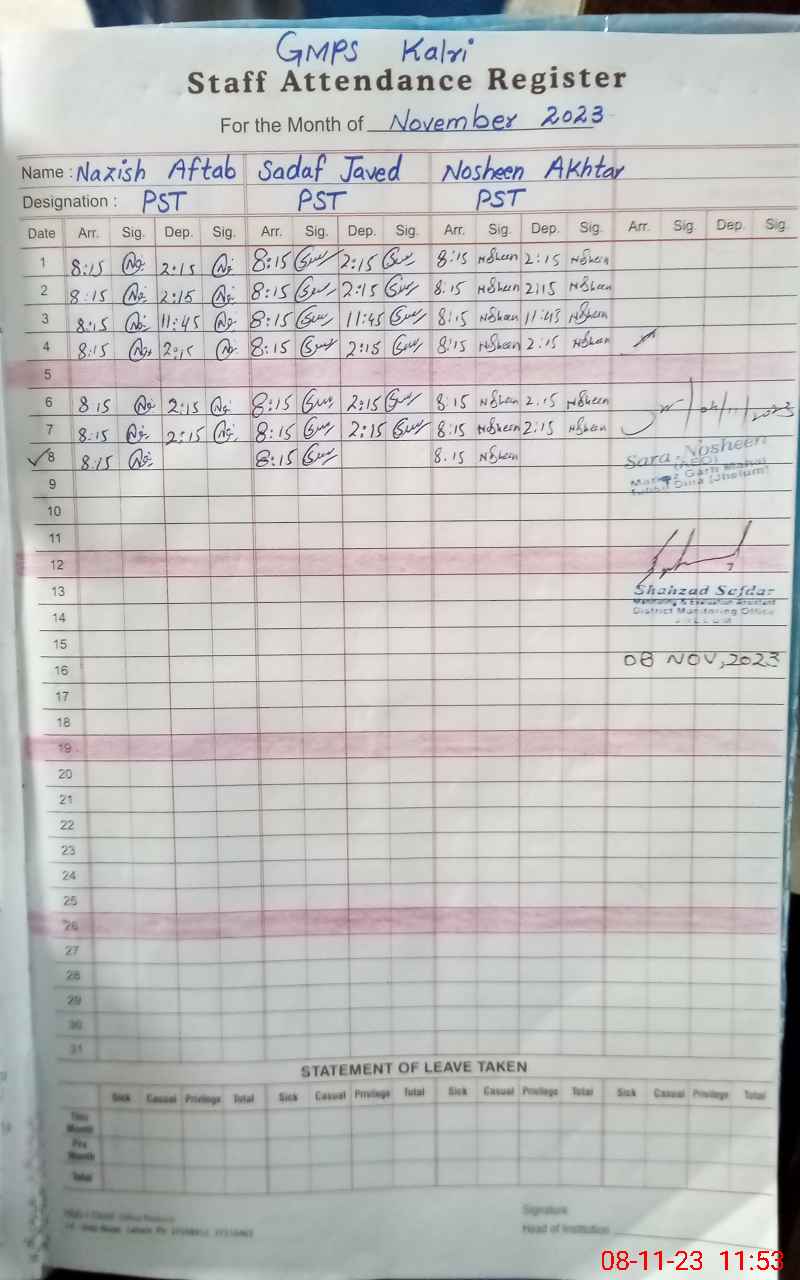 GMPS Kalri
Staff Attendance Register
For the Month of November 2023
Name : Nazish Aftab Sadaf Javed Nosheen Akhtar
Designation : PST PST PST
Date Arr. Sig. Dep. Sig. Arr. Sig. Dep. Sig. Arr. Sig. Dep. Sig. Arr. Sig. Dep. Sig.
1 8:15 2:15 8:15 2:15 8:15 Nosheen 2:15 Nosheen
2 8:15 2:15 8:15 2:15 8:15 Nosheen 2:15 Nosheen
3 8:15 11:45 8:15 11:45 8:15 Nosheen 11:45 Nosheen
4 8:15 2:15 8:15 2:15 8:15 Nosheen 2:15 Nosheen
5
6 8:15 2:15 8:15 2:15 8:15 Nosheen 2:15 Nosheen
7 8:15 2:15 8:15 2:15 8:15 Nosheen 2:15 Nosheen
8 8:15 8:15 8:15 Nosheen
Sara Nosheen
(AEO)
9
10
11
12
13
Shahzad Sefdar
Monitoring & Evaluation Assistant
District Monitoring Office
JHELUM
14
15
16
08 NOV, 2023
17
18
19
20
21
22
23
24
25
26
27
28
29
30
31
STATEMENT OF LEAVE TAKEN
Sick Casual Privilege Total Sick Casual Privilege Total Sick Casual Privilege Total Sick Casual Privilege Total
This Month
Pre Month
Total
Signature
Head of Institution
08-11-23 11:53